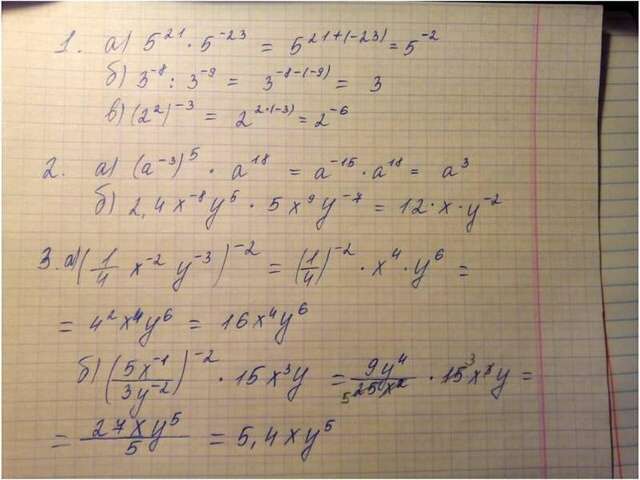 1. а) 5²¹ · 5⁻²³ = 5²¹⁺⁽⁻²³⁾ = 5⁻²
б) 3⁻⁸ : 3⁻⁹ = 3⁻⁸⁻⁽⁻⁹⁾ = 3
в) (2²)⁻³ = 2²·⁽⁻³⁾ = 2⁻⁶
2. а) (a⁻³)⁵ · a¹⁸ = a⁻¹⁵ · a¹⁸ = a³
б) 2,4x⁻⁸y⁵ · 5x⁹y⁻⁷ = 12 · x · y⁻²
3. а) (1/4 x⁻² y⁻³)⁻² = (1/4)⁻² · x⁴ · y⁶ =
= 4²x⁴y⁶ = 16x⁴y⁶
б) (5x⁻¹/3y⁻²)⁻² · 15x³y = 9y⁴/25x² · 15x³y =
= 27xy⁵/5 = 5,4xy⁵